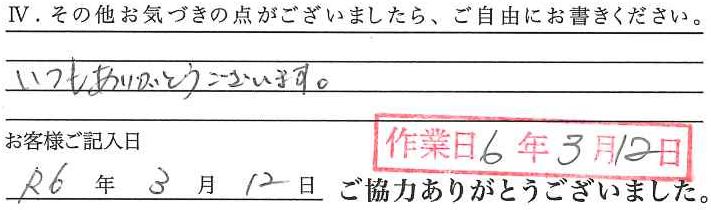 Ⅳ．その他お気づきの点がございましたら、ご自由にお書きください。
いつもありがとうございます。
お客様ご記入日
作業日6年3月12日
R6年3月12日
ご協力ありがとうございました。